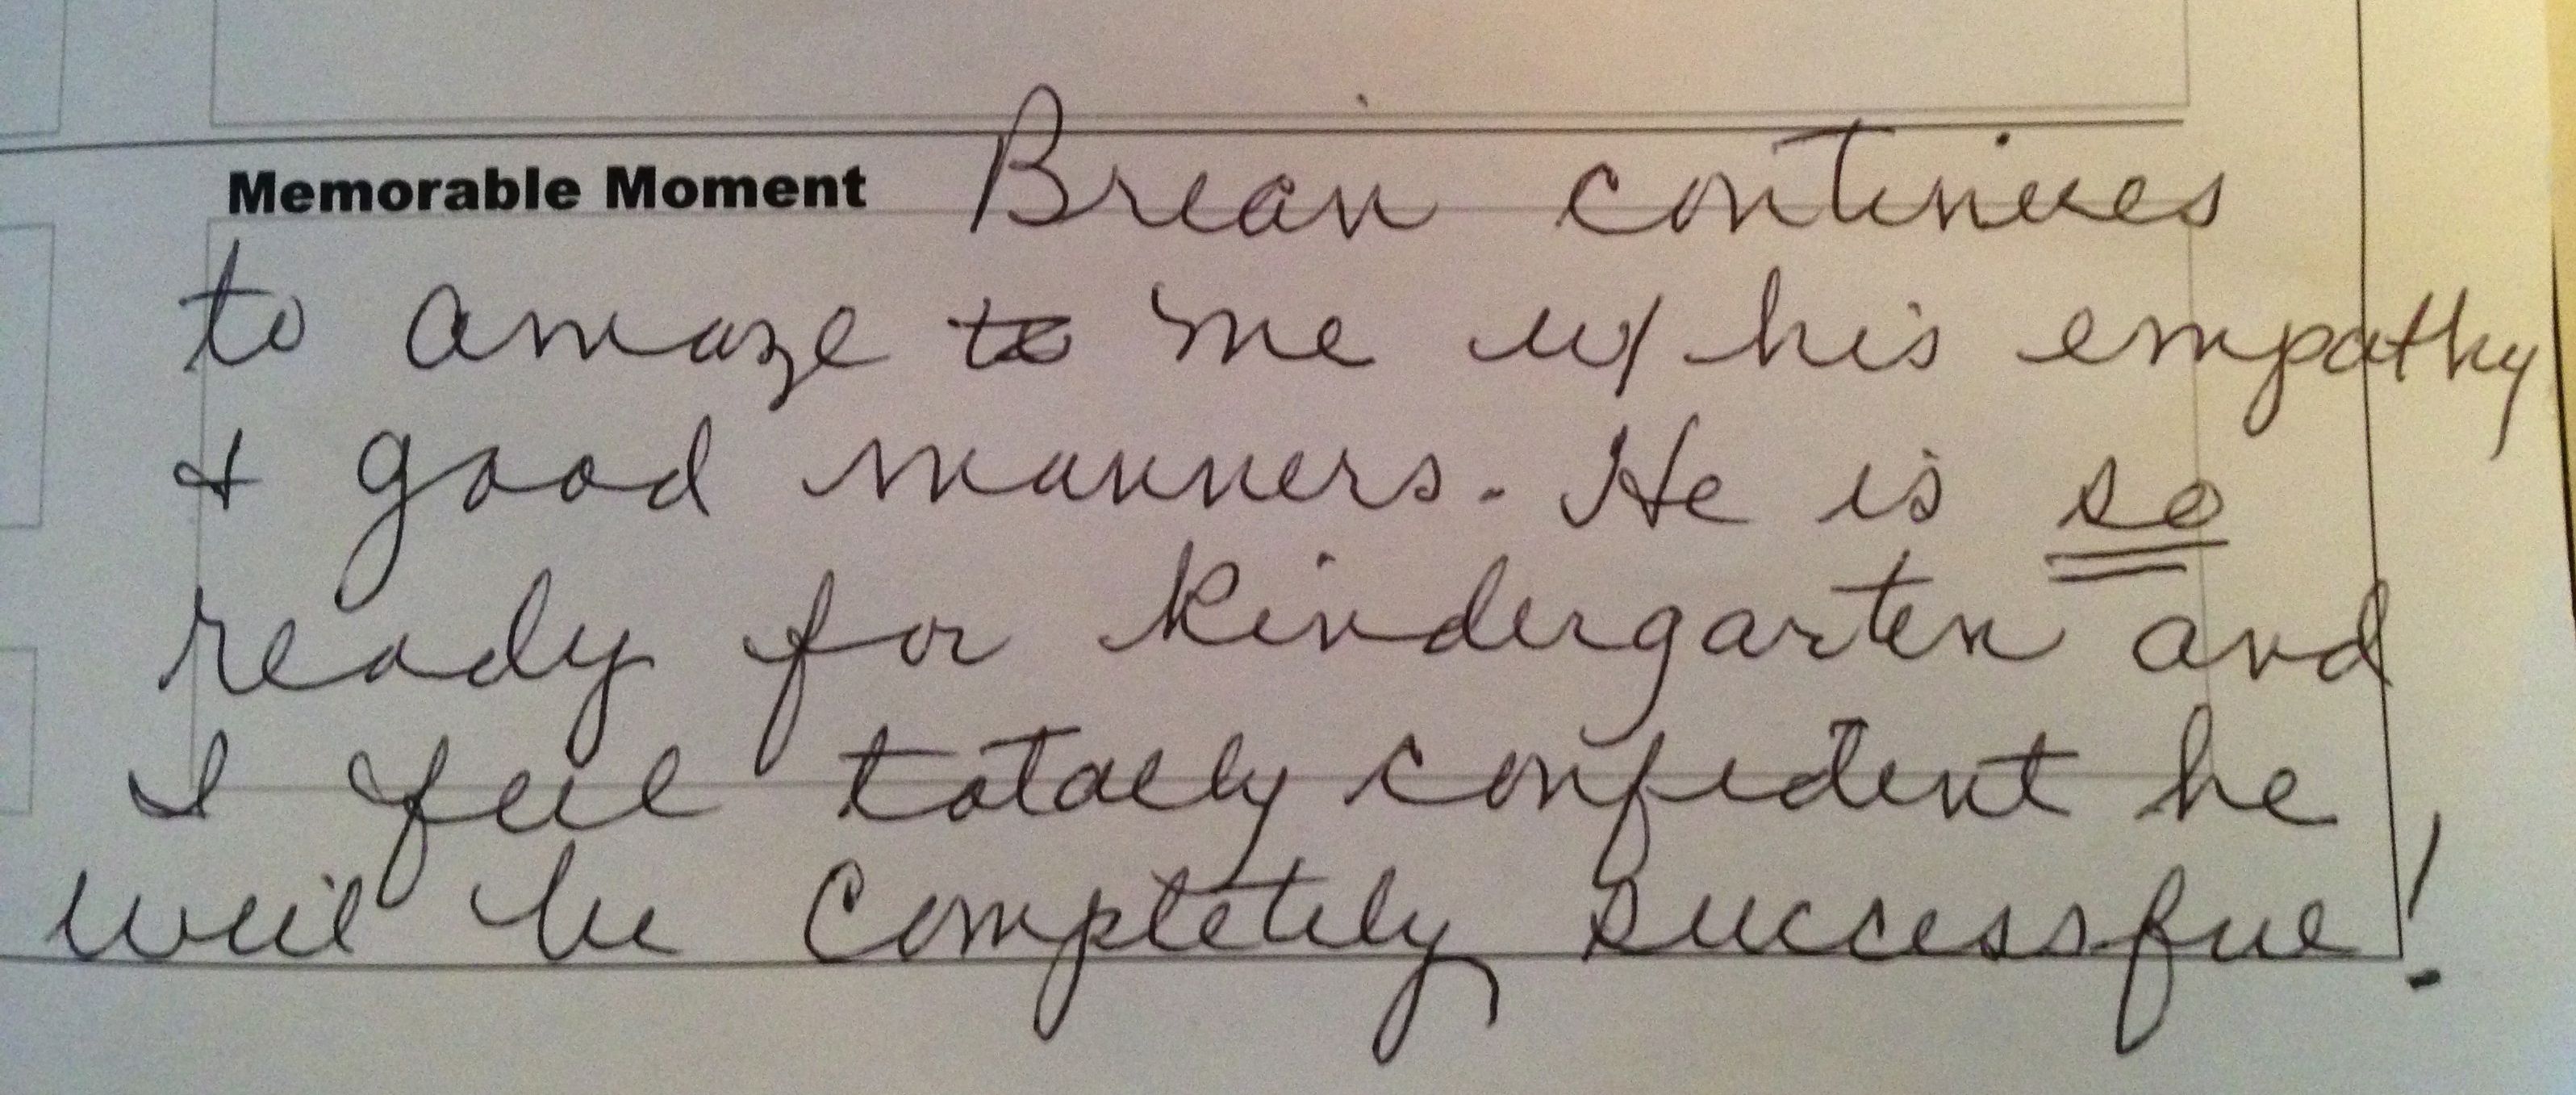 Memorable Moment Brian continues
to amaze to me w/ his empathy
& good manners. He is so
ready for kindergarten and
I feel totally confident he
will be completely successful!